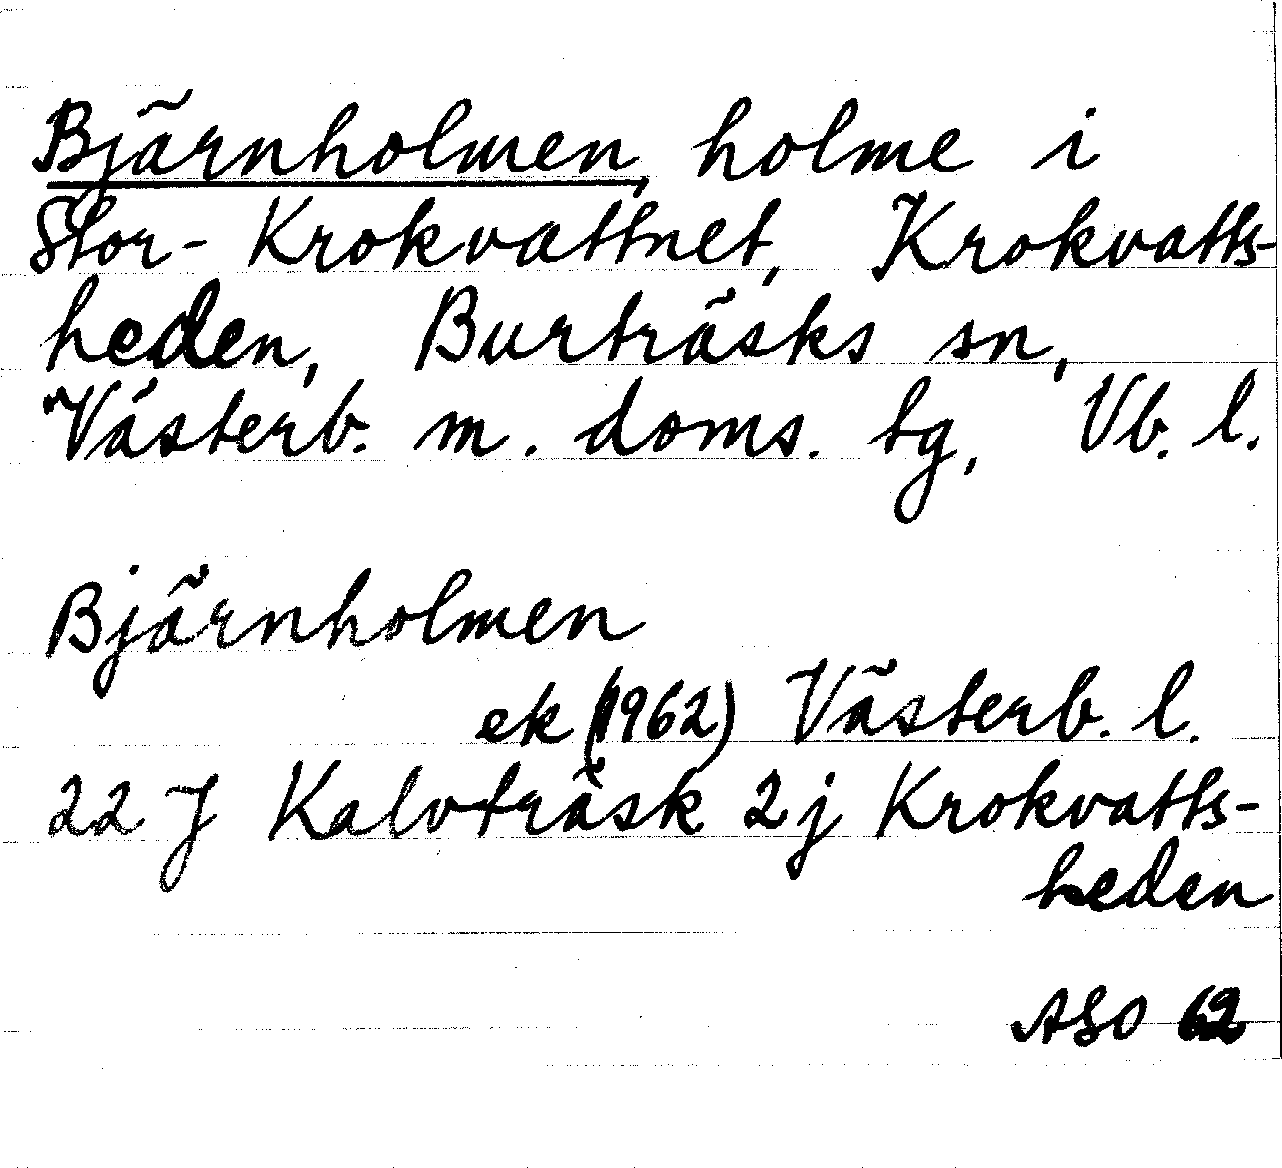 Bjärnholmen, holme i
Stor-Krokvattnet, Krokvatts-
heden, Burträsks sn,
Västerb. m. doms. tg, Vb. l.
Bjärnholmen
ek (1962) Västerb. l.
22 J Kalvträsk 2j Krokvatts-
heden
ASO 62